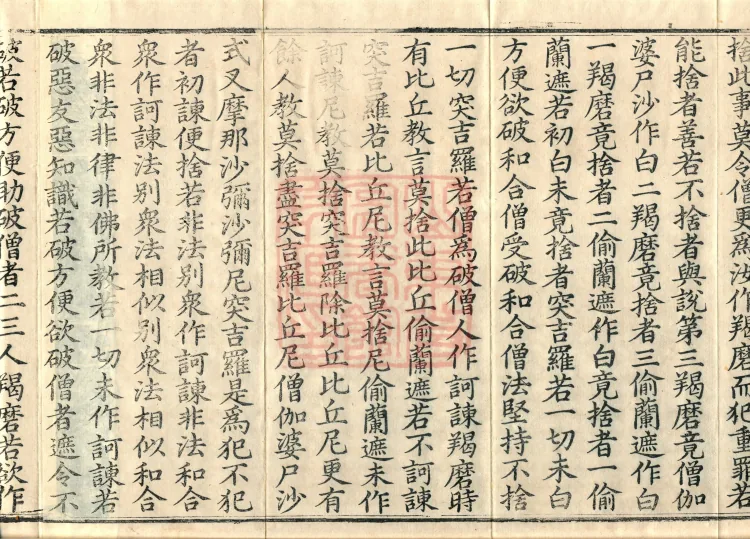 捨此事莫令僧更爲法作羯磨而犯重罪若
能捨者善若不捨者與說第三羯磨竟僧伽
婆尸沙作白二羯磨竟捨者三偷蘭遮作白
一羯磨竟捨者二偷蘭遮作白竟捨者一偷
蘭遮若初白未竟捨者突吉羅若一切未白
方便欲破和合僧受破和合僧法堅持不捨
一切突吉羅若僧爲破僧人作訶諫羯磨時
有比丘教言莫捨此比丘偷蘭遮若不訶諫
突吉羅若比丘尼教言莫捨尼偷蘭遮未作
訶諫尼教莫捨突吉羅除比丘比丘尼更有
餘人教莫捨盡突吉羅比丘尼僧伽婆尸沙
式叉摩那沙彌沙彌尼突吉羅是爲犯不犯
者初諫便捨若非法別衆作訶諫非法和合
衆作訶諫法別衆法相似別衆法相似和合
衆非法非律非佛所教若一切未作訶諫若
破惡友惡知識若破方便欲破僧者遮令不
破若破方便助破僧者二三人羯磨若欲作